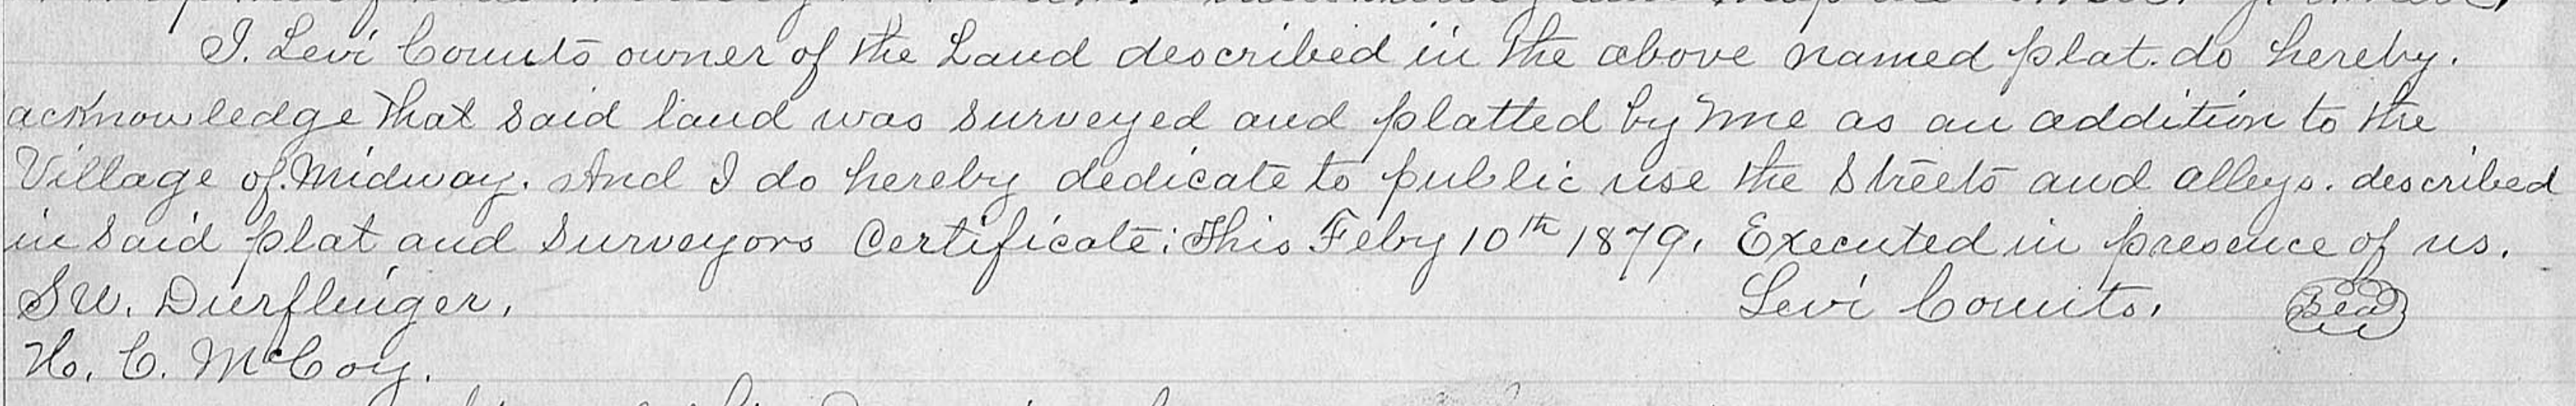 I. Levi Counts owner of the Land described in the above named plat. do hereby.
acknowledge that said land was surveyed and platted by me as an addition to the
Village of Midway. And I do hereby dedicate to public use the Streets and alleys. described
in said plat and Surveyors Certificate: This Feby 10th 1879. Executed in presence of us.
SW. Durflinger. Levi Counts. Seal
H. C. McCoy.